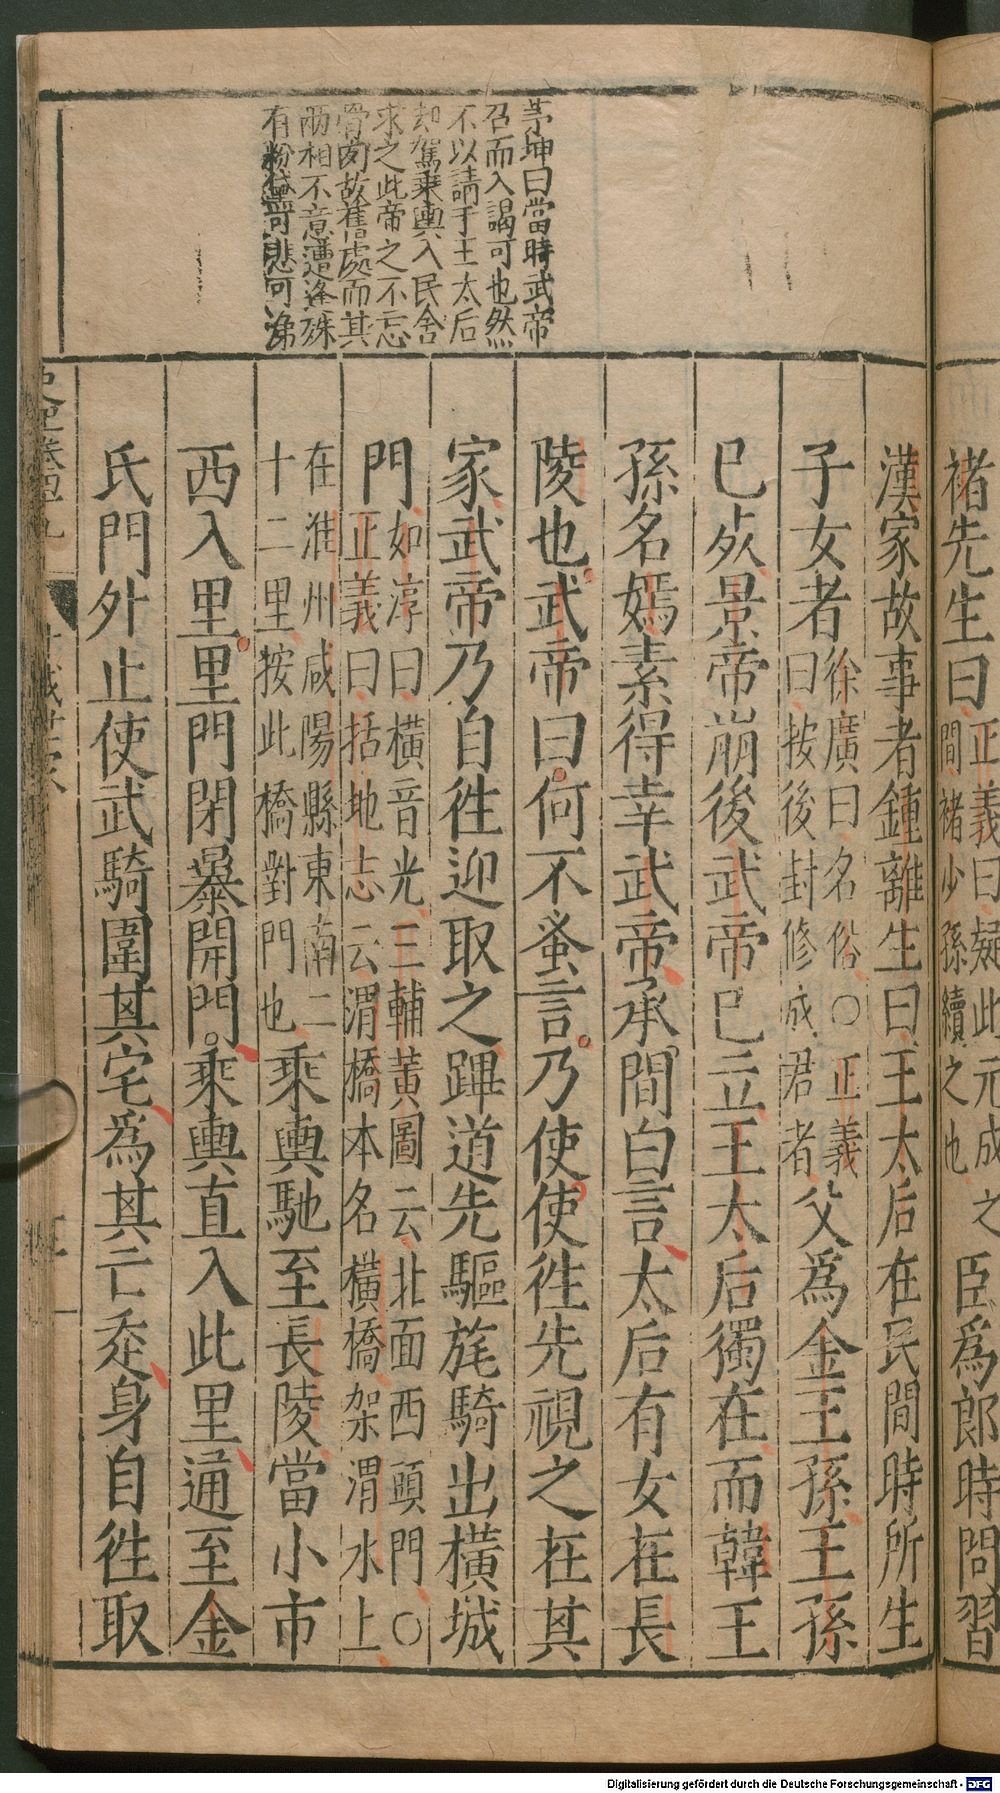 褚先生曰正義曰疑此元成之間褚少孫續之也臣爲郎時問習
漢家故事者鍾離生曰王太后在民間時所生
子女者徐廣曰名俗○正義曰按後封修成君者父爲金王孫王孫
已死景帝崩後武帝已立王太后獨在而韓王
孫名嫣素得幸武帝承間白言太后有女在長
陵也武帝曰何不蚤言乃使使徃先視之在其
家武帝乃自徃迎取之蹕道先驅旄騎出橫城
門如淳曰橫音光三輔黃圖云北面西頭門○正義曰括地志云渭橋本名橫橋架渭水上
在淮州咸陽縣東南二十二里按此橋對門也乘輿馳至長陵當小市
西入里里門閉暴開門乘輿直入此里通至金
氏門外止使武騎圍其宅爲其亡走身自徃取
茅坤曰當時武帝
召而入謁可也然
不以請于王太后
却駕乘輿入民舍
求之此帝之不忘
骨肉故舊處而其
兩相不意遭逢殊
有粉可悲可涕
史記卷四九
外戚世家
Digitalisierung gefördert durch die Deutsche Forschungsgemeinschaft - DFG